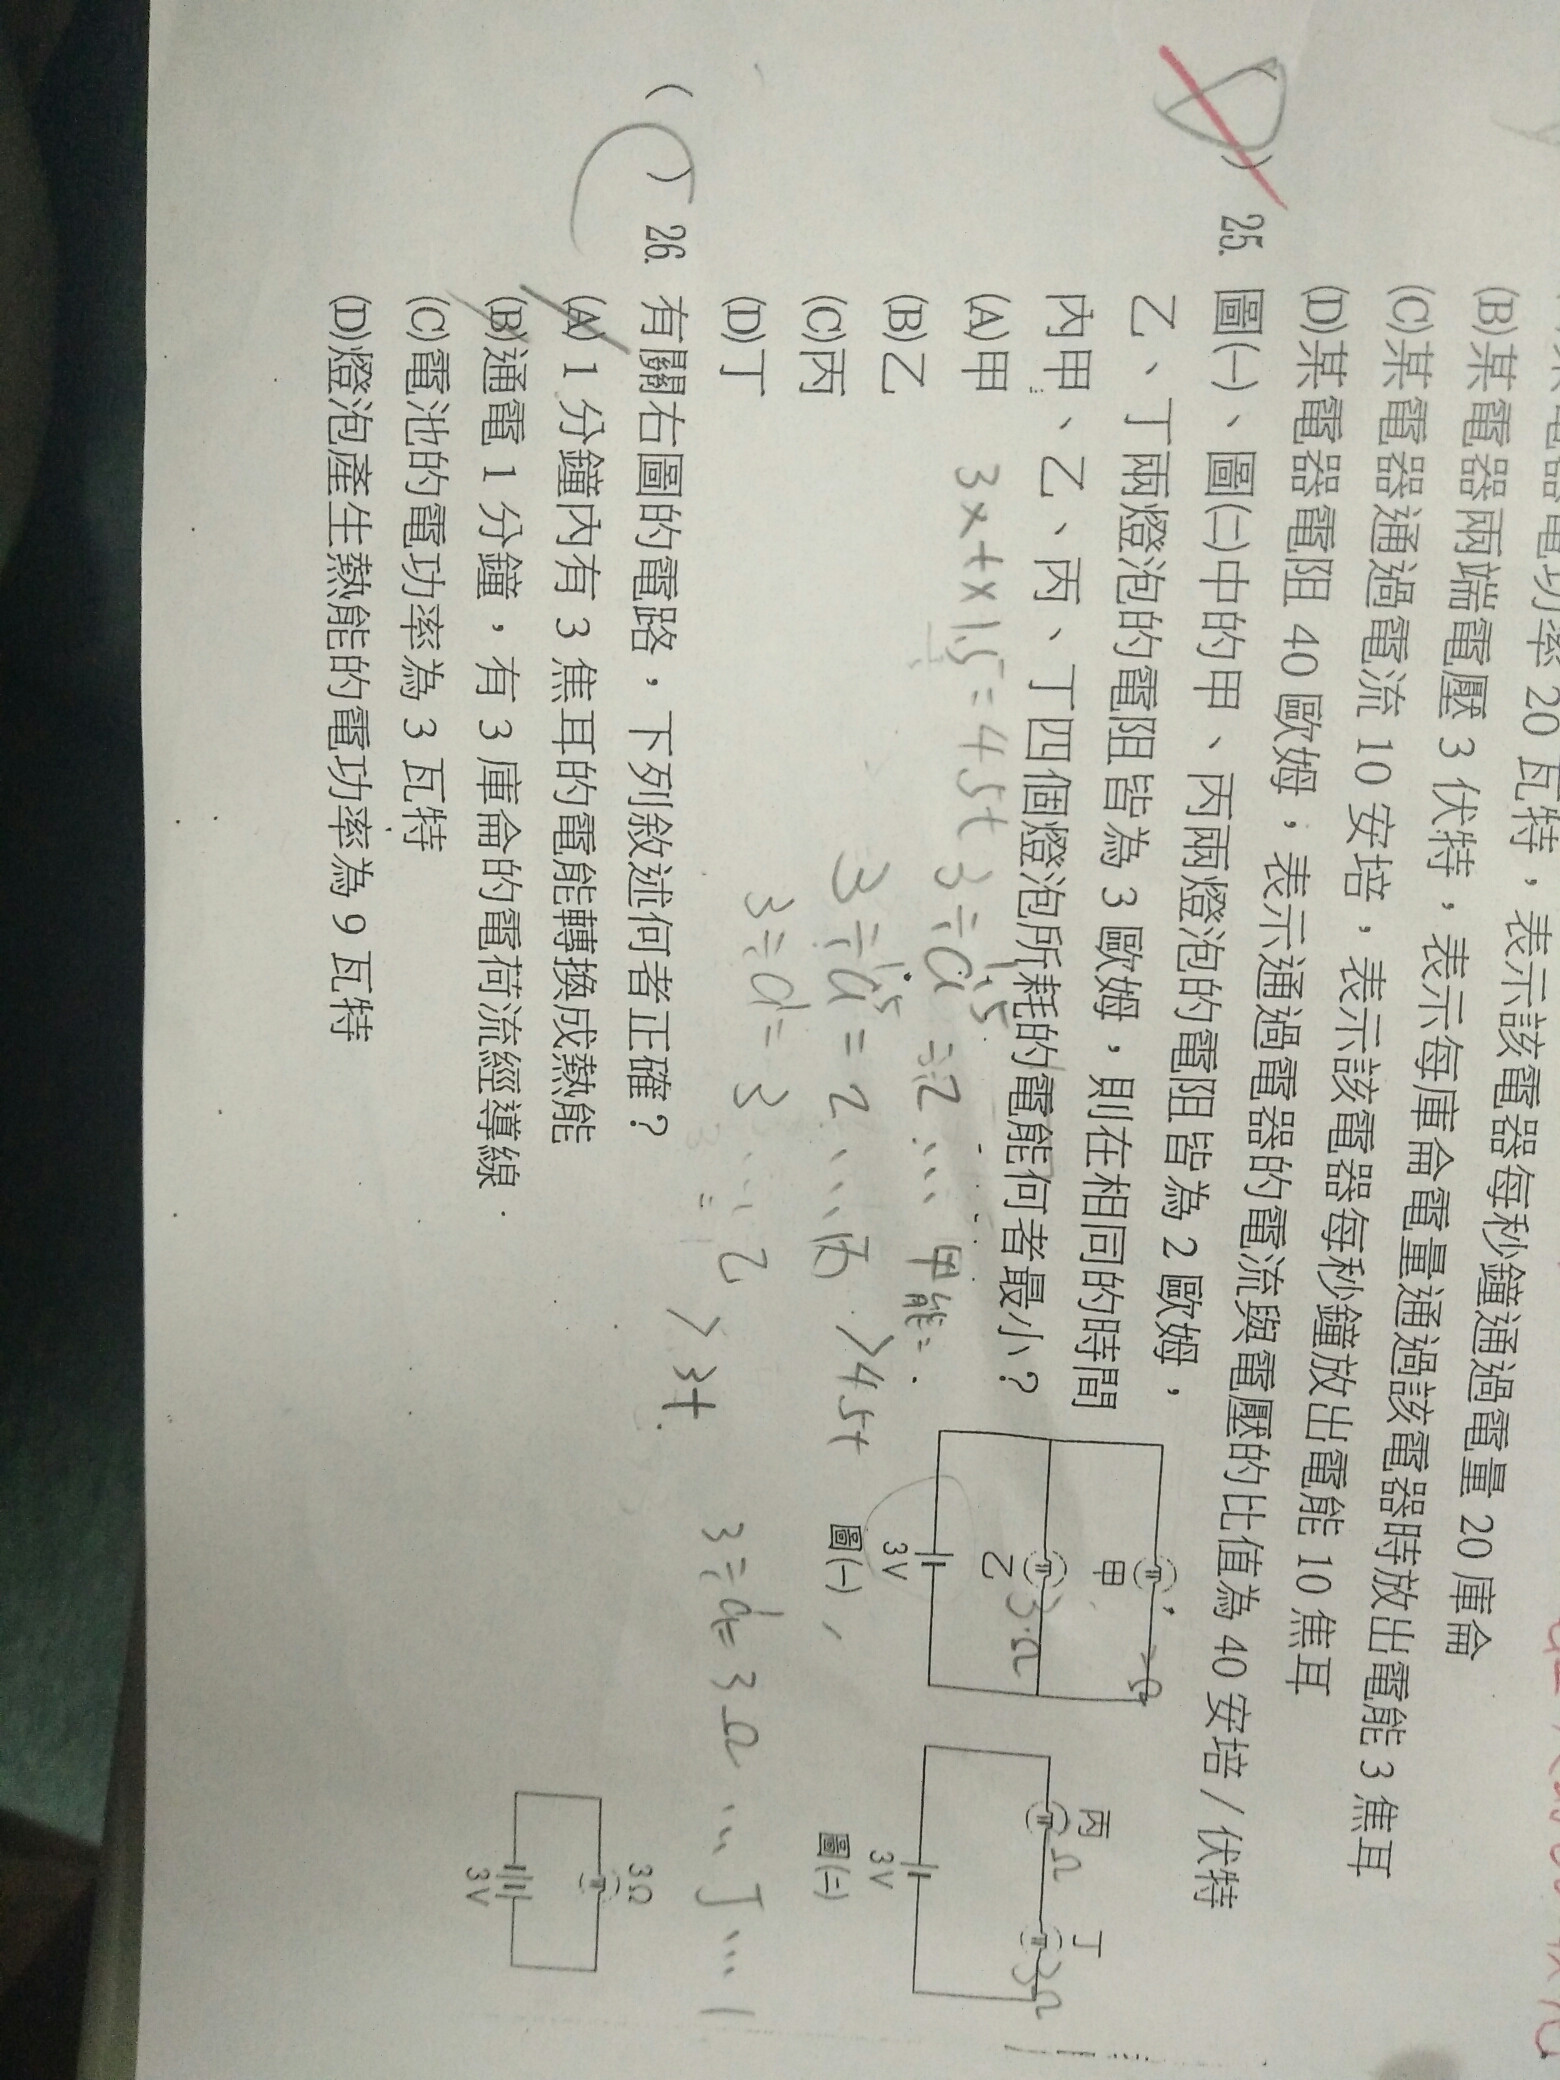 某電器電功率 20 瓦特，表示該電器每秒鐘通過電量 20 庫侖
(B)某電器兩端電壓 3 伏特，表示每庫侖電量通過該電器時放出電能 3 焦耳
(C)某電器通過電流 10 安培，表示該電器每秒鐘放出電能 10 焦耳
(D)某電器電阻 40 歐姆，表示通過電器的電流與電壓的比值為 40 安培/伏特
( D ) 25. 圖(一)、圖(二)中的甲、丙兩燈泡的電阻皆為 2 歐姆，
乙、丁兩燈泡的電阻皆為 3 歐姆，則在相同的時間
內甲、乙、丙、丁四個燈泡所耗的電能何者最小？
(A)甲
(B)乙
(C)丙
(D)丁
3×t×1.5=4.5t
3÷a=2 … 甲能=
1.5
3÷a=2 … 丙 >4.5t
1.5
3÷a=3
… 乙 >3t
3÷a=3Ω … 丁 … 1
甲
2Ω
乙
3Ω
3V
圖(一)
丙
Ω
丁
3Ω
3V
圖(二)
( C ) 26. 有關右圖的電路，下列敘述何者正確？
(A) 1 分鐘內有 3 焦耳的電能轉換成熱能
(B)通電 1 分鐘，有 3 庫侖的電荷流經導線
(C)電池的電功率為 3 瓦特
(D)燈泡產生熱能的電功率為 9 瓦特
3Ω
3V